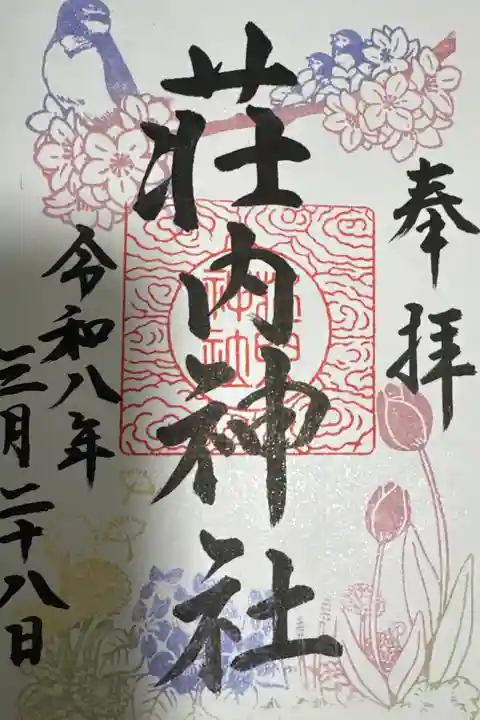 奉拝
荘内神社
令和八年
三月二十八日